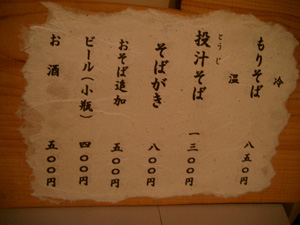 冷
もりそば 八五〇円
温
とうじ
投汁そば 一三〇〇円
そばがき 八〇〇円
おそば追加 五〇〇円
ビール(小瓶) 四〇〇円
お酒 五〇〇円